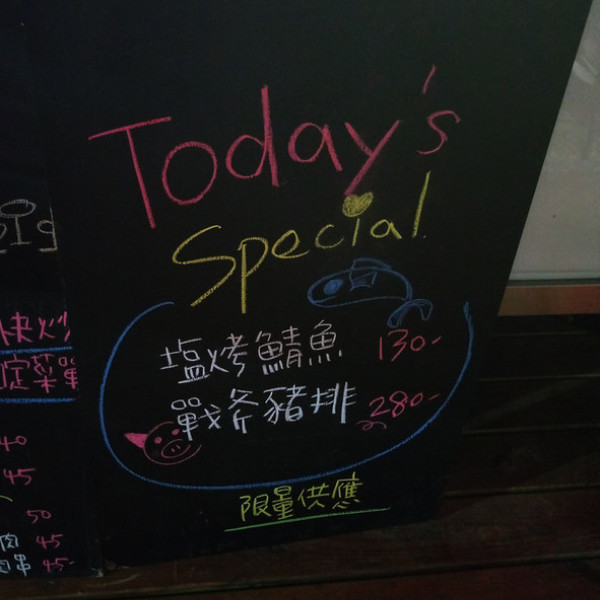 Today's
Special
塩烤鯖魚 130-
戰斧豬排 280-
限量供應
快炒
定菜單
40
45
50
肉 45
肉串 45-